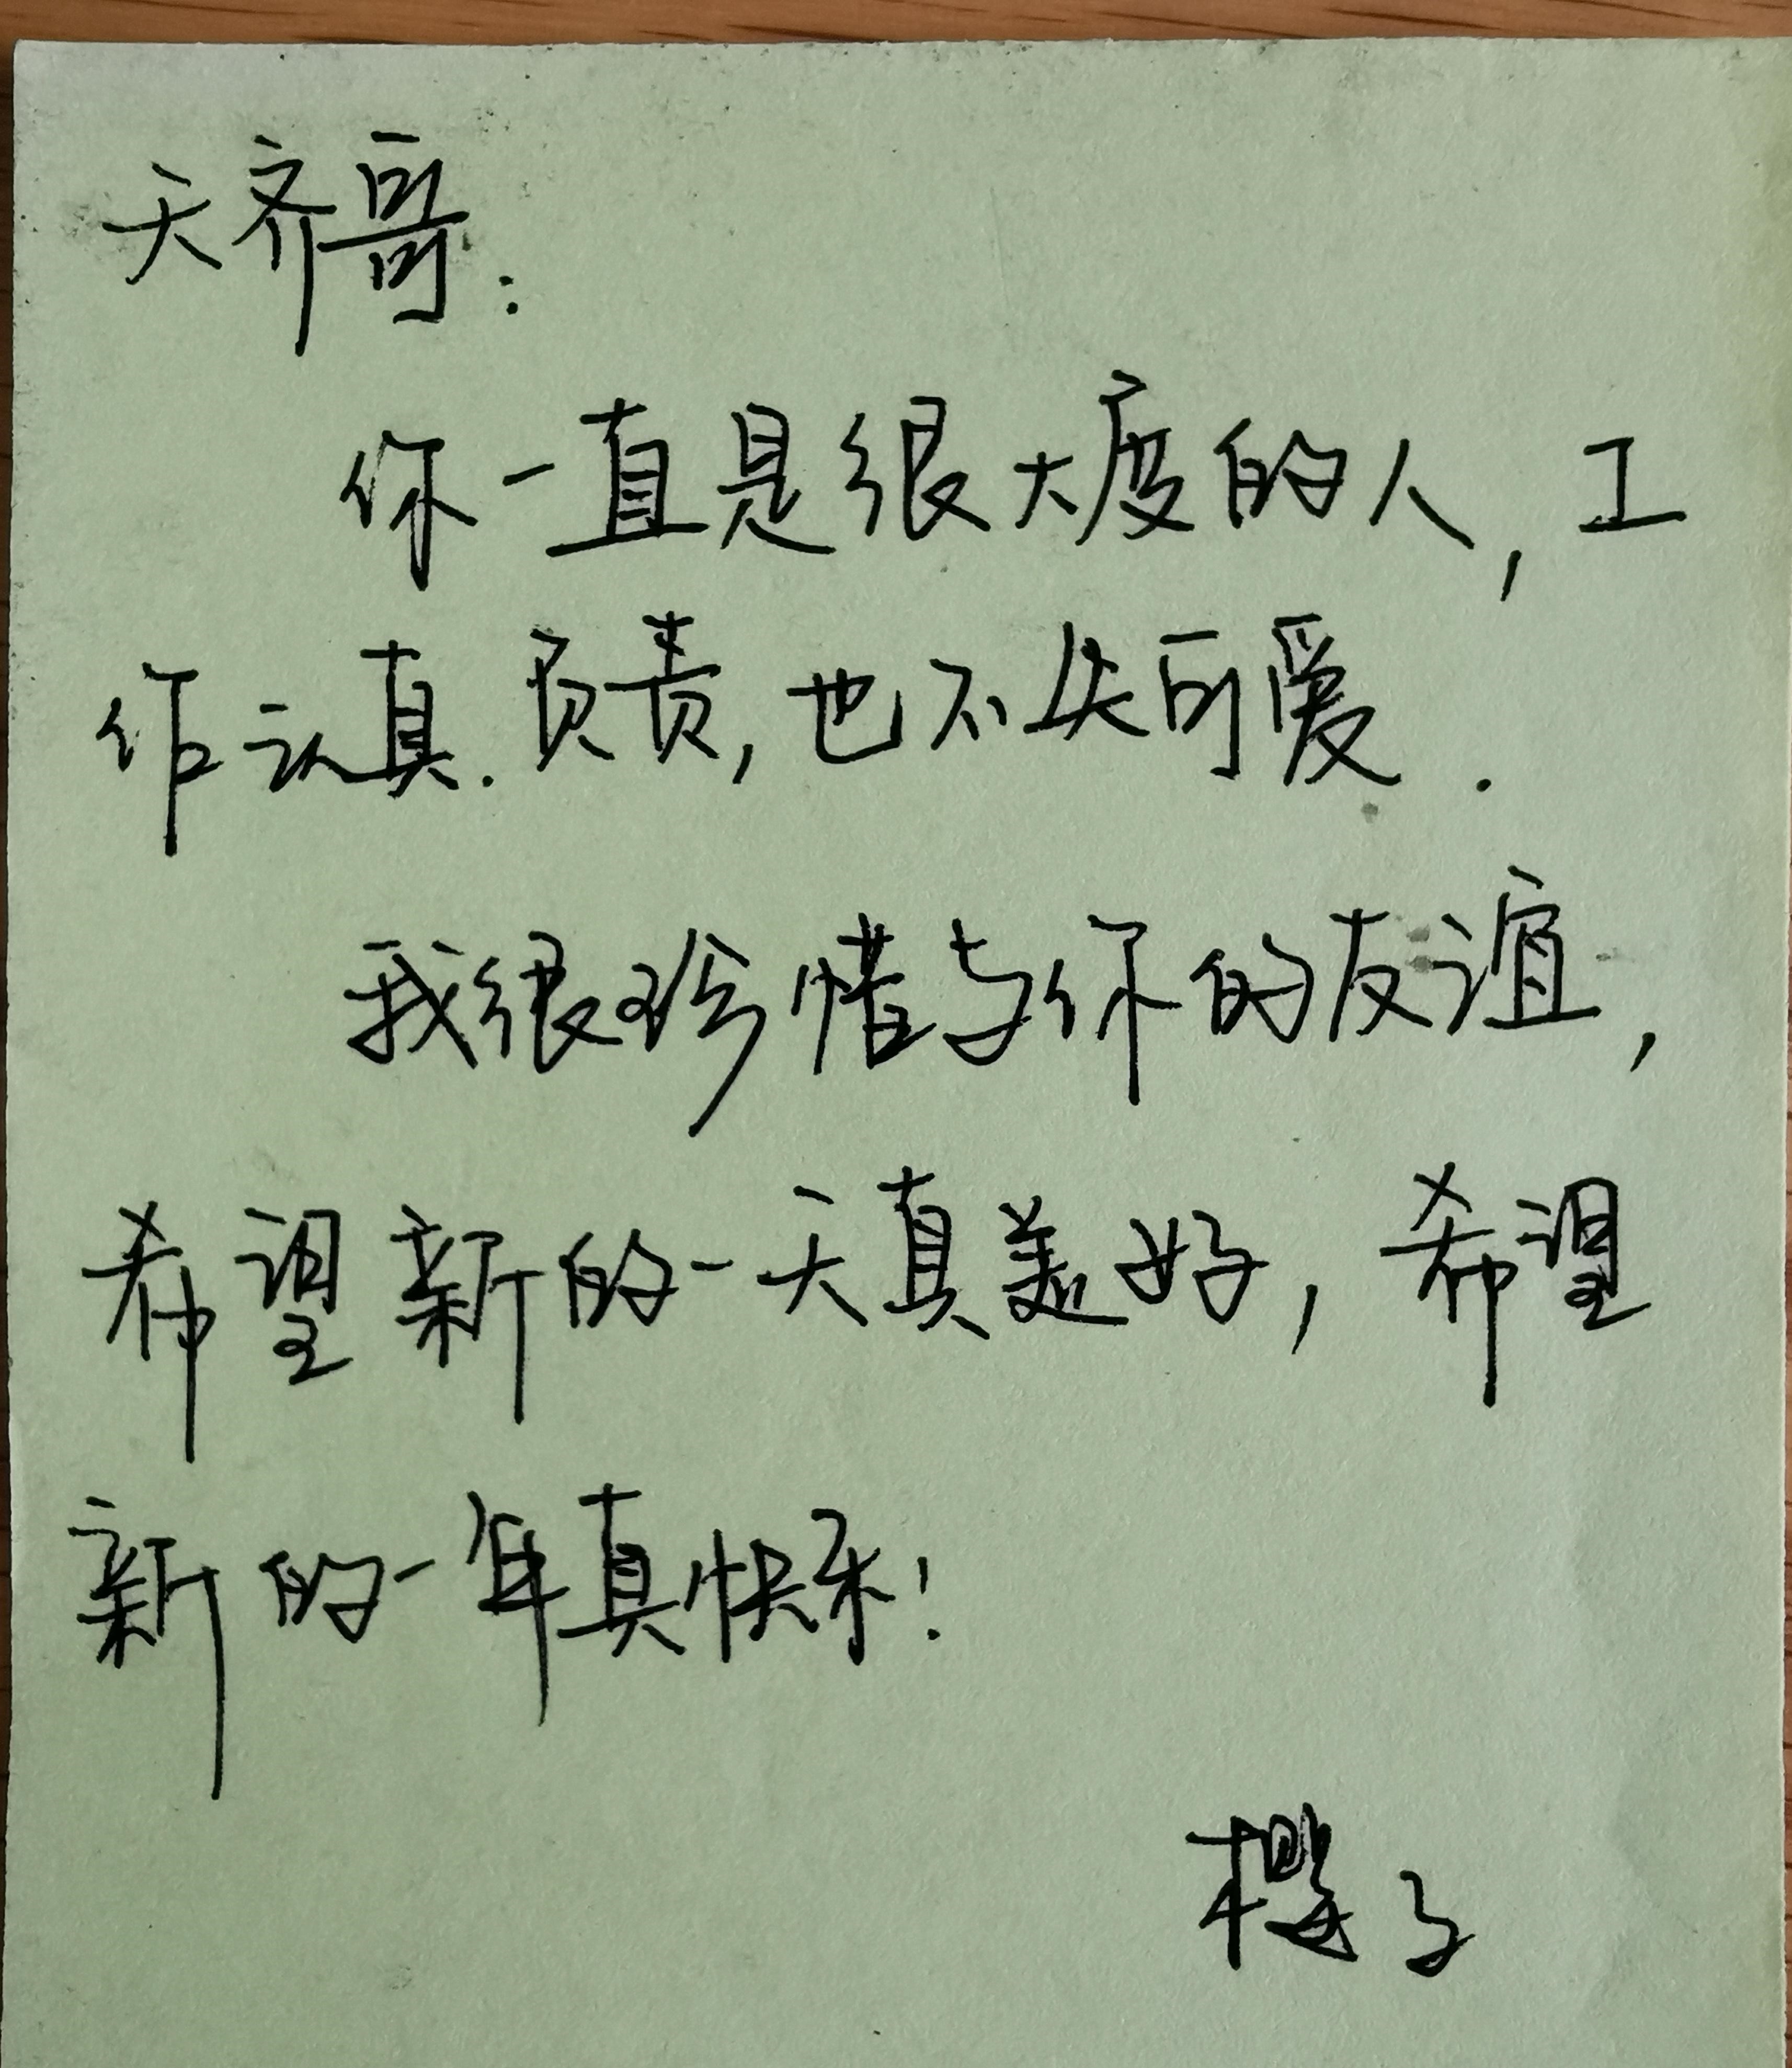 天齐哥：
你一直是很大度的人，工
作认真.负责，也不失可爱.
我很珍惜与你的友谊，
希望新的一天真美好，希望
新的一年真快乐！
樱子